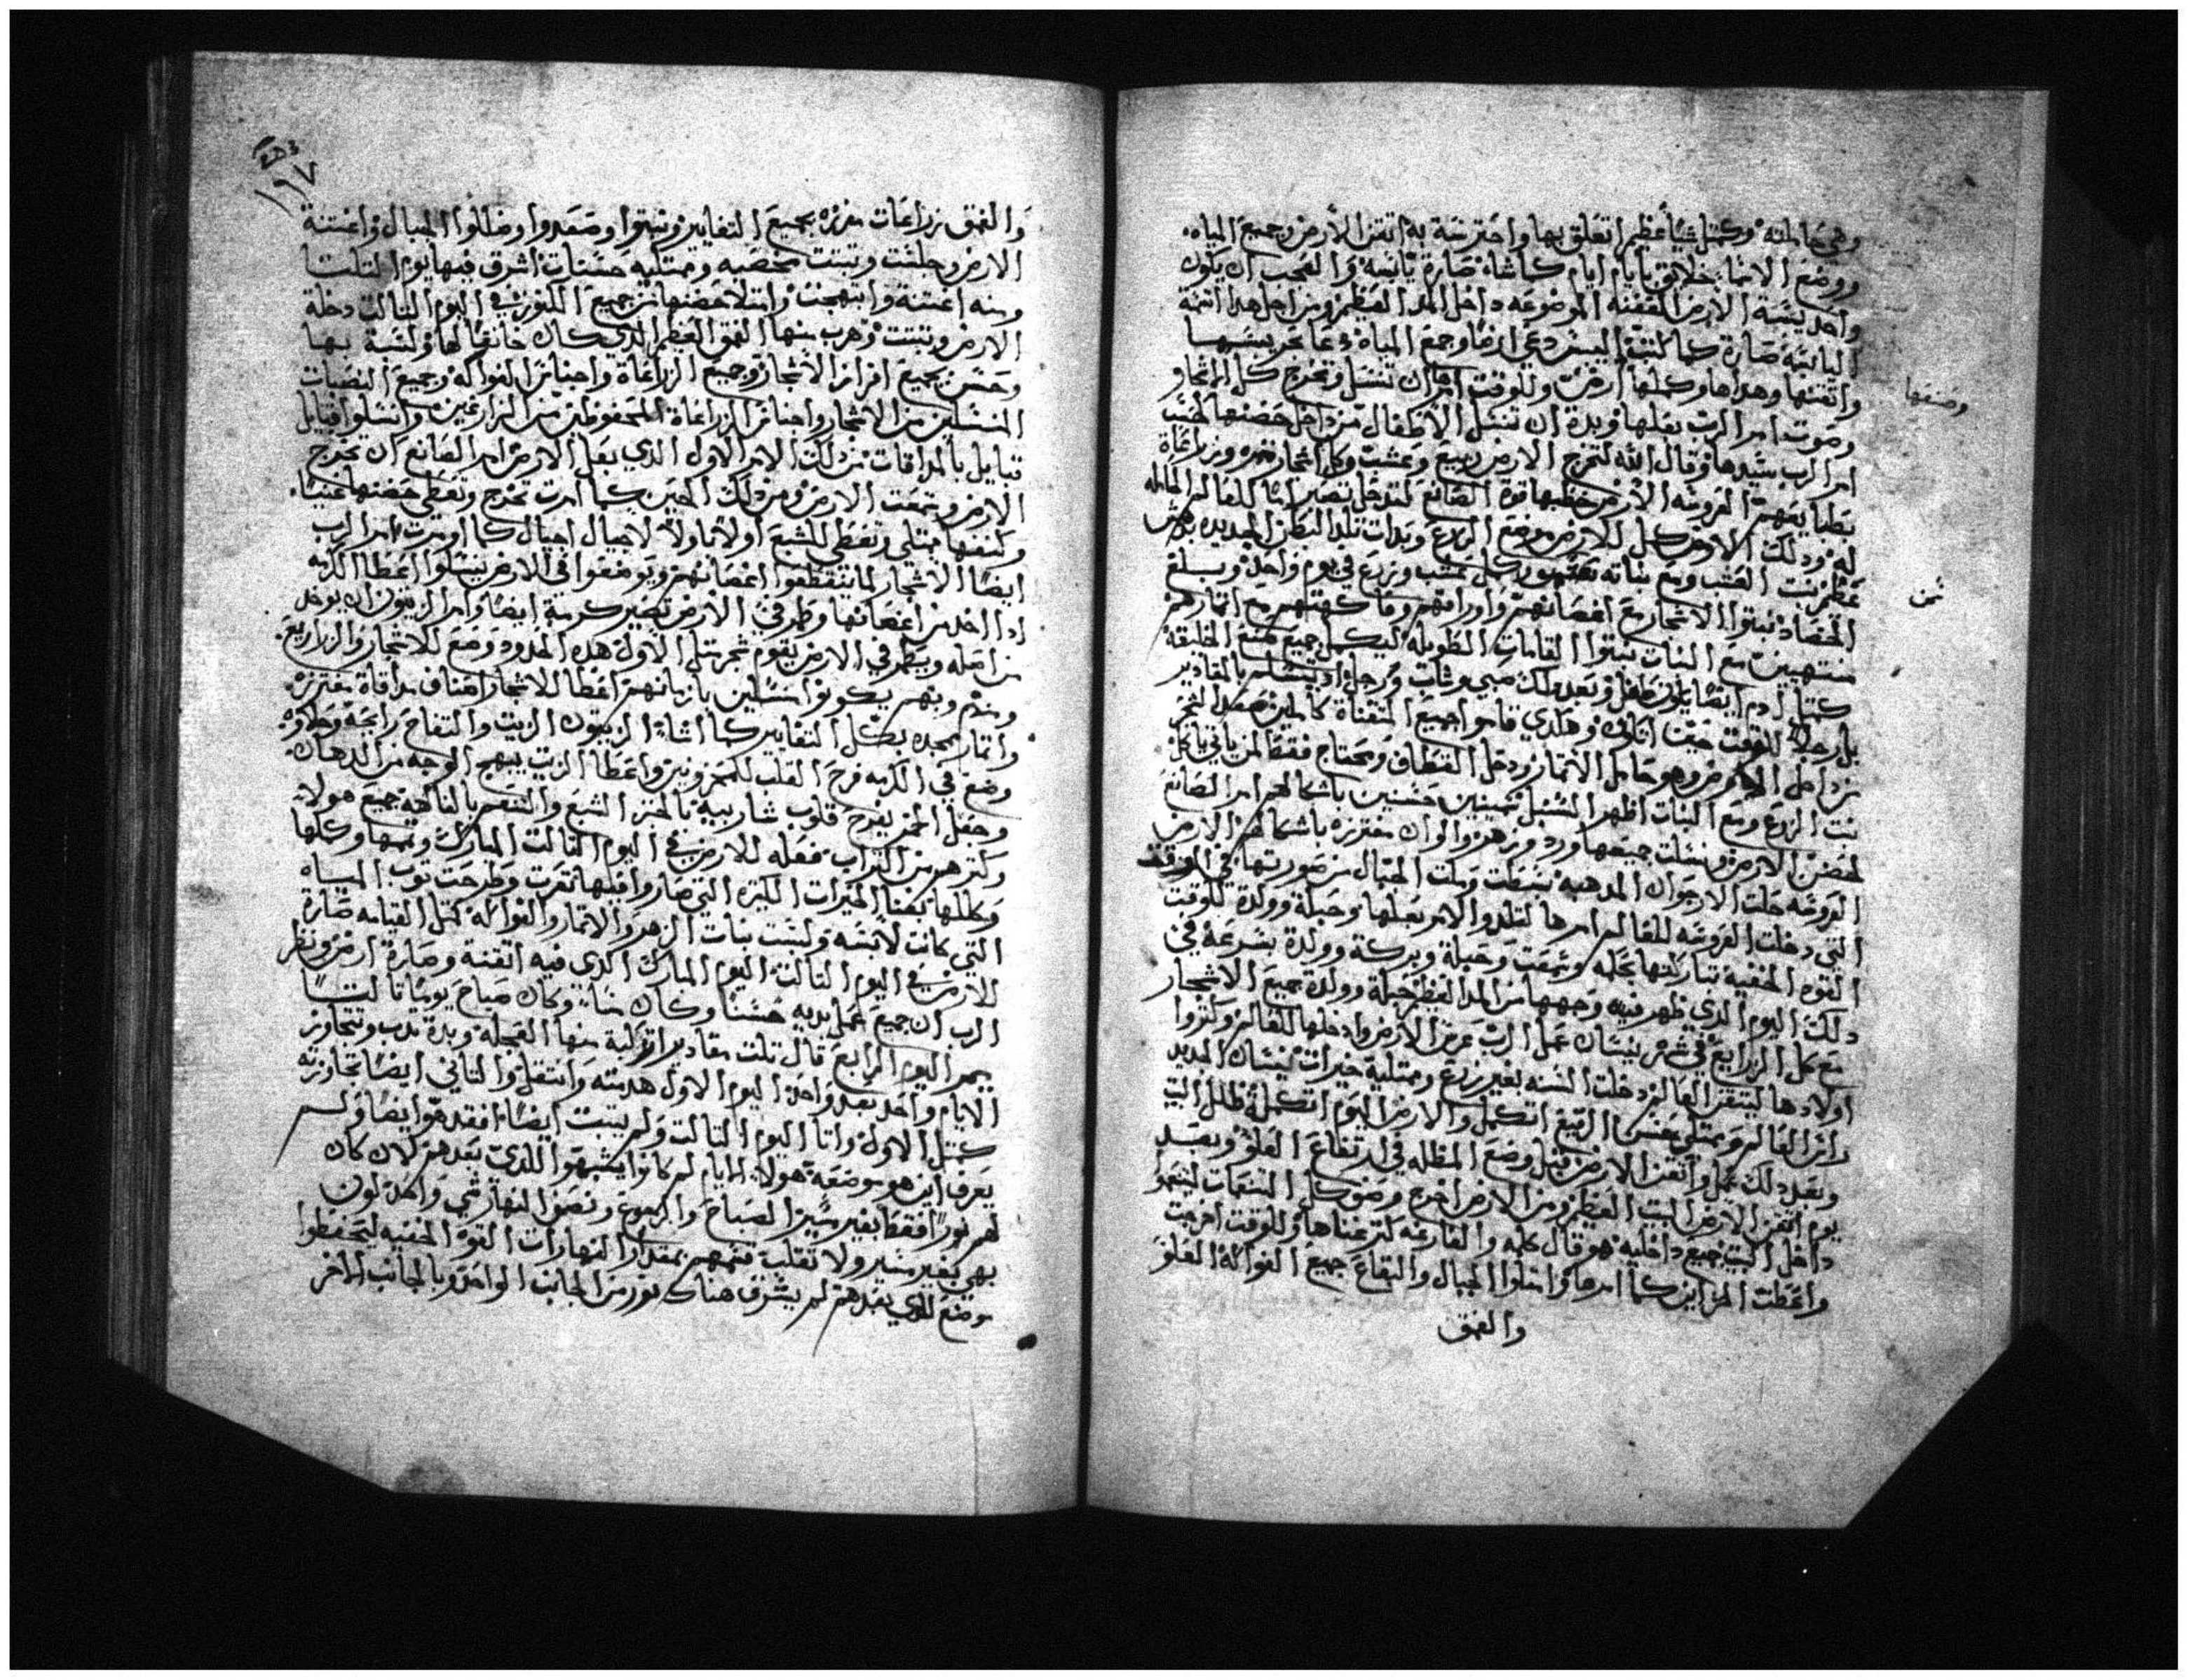 وهي حاملته وكمثل شيًا عظيم اتعلق بها واحترسة به اتقن الأرض وجميع المياه
ووضع الاشا خلايق بأيام ايام كما شاه صارة يابسه والعجب ان يكون
واحد يبسة الارض المتقنه الموضوعه داخل المد العظيم ومن اجل هدا اتقنة
اليابسه صارة كما كتب اليبس دعي ارضًا وجمع المياه دعا بحر
واتقنها وهداها وكملها ارض وللوقت امر ان تنسل وتخرج كل الاشجار
وصنفها
وصوت امر الرب بعلها وبدة ان تنسل الاطفال من داخل حضنها
امر الرب سيدها وقال الله لتخرج الارض ربيع وعشب وكل اشجار مثمره وزراعاة
العروسه الأرض خطبها قوة الصانع
له ودلك الارض للارض وضع الزرع وبدات تلد البطن الجديده
نبت العشب ومع نباته كمل عشب وزرع في يوم واحد وبلغ
ثمن
الحصاد نبتوا الاشجار مع اغصانهم واوراقهم وفاكهتهم مع اتمارهم
منتهيين مع النبات نبتوا القامات الطويله ليكمل جميع الخليقه
كمتل ادم ايضًا يكون طفل وبعد دلك صبي وشاب ورجل بالمقادير
بل رجلا للوقت وهكدي قاموا جميع المتقناة كاملين صعد الشجر
من داخل الارض وهو حامل الاتمار ودخل القطاف ومحتاج فقط لمن ياتي ياكل
نبت الزرع ومع النبات اظهر السنبل حسنين باشكالهم امر الصانع
لحضن الارض ونسلت جميعها ورد وزهر والوان مفترزه باشكالهم الارض
العروسه حلت الارجوان المدهبه بسطت وملت الجبال من صورتها في الوقت
التي دخلت العروسه للعالم امرها لتلد والامر بعلها وحبلة وولدة للوقت
القوه الخفيه تباركتها بجمله وسمعت وحبلة وبركة وولدة بسرعة في
دلك اليوم الدي ظهر فيه وجهها من المد العظيم حبلة وولدة جميع الاشجار
مع كل الزرايع في شهر نيسان عمل الرب عرس الارض وادخلها للعالم وكتروا
اولادها ليتقن العالم دخلت السنه بغير زرع وممتليه خيرات نيسان الجديد
العالم ويمتلي الربيع اتكمل والارض اليوم اتكملة ظلل البيت
وبعد دلك عمل واتقن الارض قبل وضع المظله في ارتفاع العلو وبعد
يوم اتقن الارض البيت العظيم ومن الارض اخرج وضوع كل النعمات
داخل البيت جميع داخليه هو قال كلمه والفارغه لترعناها وللوقت اخرجت
واعطت المزاين كما امرها وامتلوا الجبال والبقاع جميع الفواكه العلو
والعمق
١٩٧
والعمق زراعات مفرزه بجميع التغايير ونبتوا وصعدوا وظللوا الجبال واغتنة
الارض وحلت وتبتت مخصبه وممتليه حسنات اشرق فيها يوم التلتا
ومنه اغتنة وابتهجت وامتلا حضنها من جميع الكنوز في اليوم التالت دخلة
الارض وتبتت وهرب منها العمق العظيم الدي كان خانقا لها ولبسة بها
وحسن بجميع افراز الاشجار وجميع الزراعاة واجناس الفواكه وجميع النصبات
المنسلين من الاشجار واجناس الزراعاة المحفوظين من الزارعين وانتسلوا قبايل
قبايل بالمداقات من دلك الامر الاول الدي بعل الارض امر الصانع ان تخرج
الارض وسمعت الارض ومن دلك الحين كما امرت تخرج وتعطي حضنها غنيًا
وكنفها يمتلي وتعطي للشبع اولاً فاولاً لاجيال اجيال كما اومرت امر الرب
ايضًا الاشجار لما يتقطعوا اغصانهم ويوضعوا في الارض ينسلوا اعطا الكرمه
ادا اخد من اغصانها وطمر في الارض تصير كرمة ايضًا وامر الزيتون ان يوخد
من اصله ويطمر في الارض يقوم شجر متل الاول هده الحدود وضع للاشجار والزراريع
ومنهم وبهم يكونوا منسلين بازمانهم اعطا للاشجار اصناف مداقاة مفترزه
واتمار مجده بكل التغايير كما شاء الزيتون الزيت والتفاح رايحه وحلاوه
وضع في الكرمه فرح القلب للمحزونين واعطا الزيت يبهج الوجه من الدهان
وجعل الخمر يفرح قلوب شاربيه بالخبز الشبع والتنعم بالفاكهه جميع هولاء
وكترهم من التراب فعله للارض في اليوم التالت المبارك وتممها وكملها
وكللها بغنا الخيرات الكتيره التي صاروا فيها تعرت وطرحت توب المياه
التي كانت لابسه ولبست نبات الزهر والاتمار والفواكه كمتل القيامه صارة
للارض في اليوم التالت اليوم المبارك الدي فيه اتقنة وصارة ارض ونظر
الرب ان جميع عمل يديه حسنا وكان مساء وكان صباح يومًا تالتًا
اليوم الرابع قال تلت مقادير اتركبة منها العجله وبدة تدب وتتجاوز
الايام واحد بعد واحد اليوم الاول هديته وانتقل والتاني ايضًا تجاوزته
كمتل الاول واتا اليوم التالت ولم يتبت ايضًا افقد هو ايضًا ولم
يعرف اين هو موضعه هولاء الايام لم كانوا يشبهوا للدي بعدهم لان كان
لهم نورًا فقط بغير ميز الصباح والرجوع ونصف النهار شي واحد لون
بهي بغير منير ولا تقلب قسمهم بمقدار النهارات القوة الخفيه ليتحفظوا
موضع للدي بعدهم لم يشرق هناك نور من الجانب الواحد وبالجانب الاخر